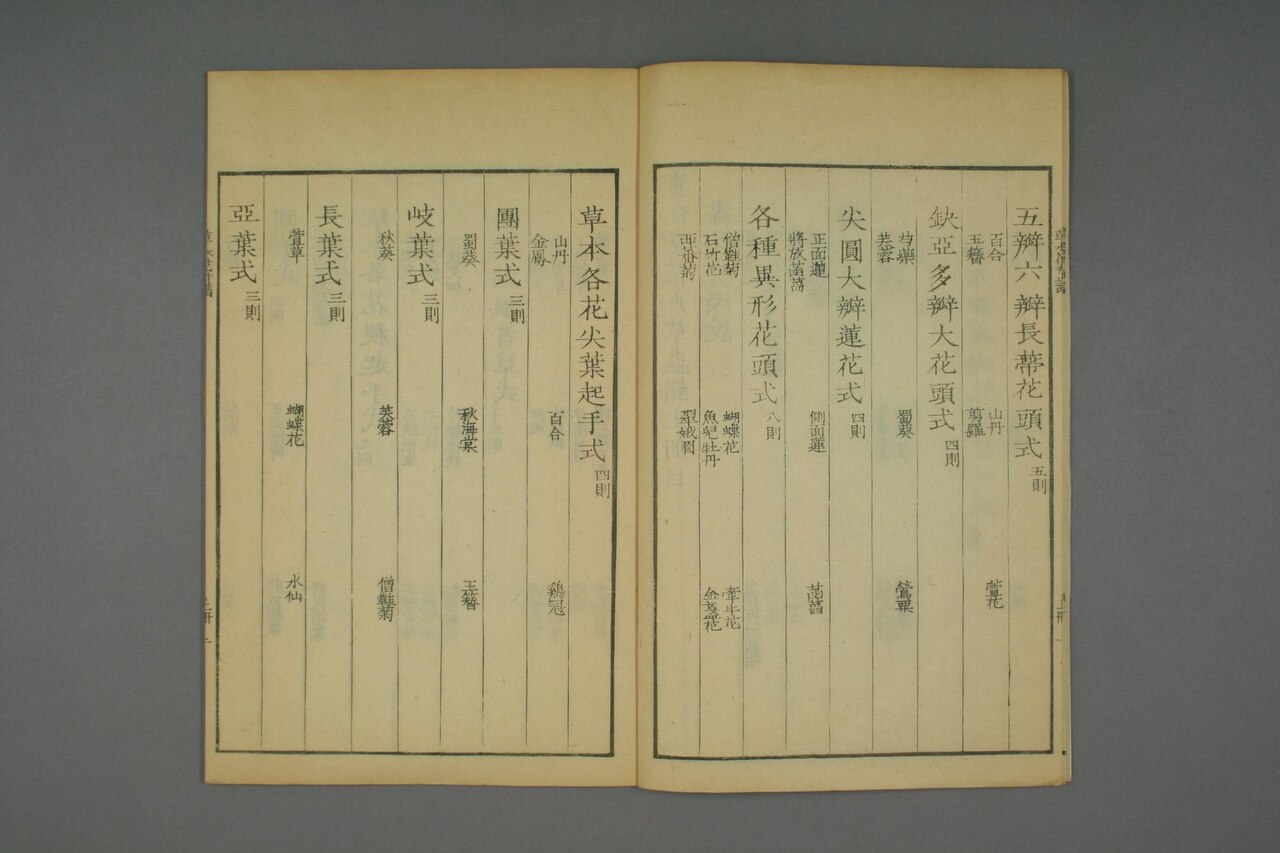 五瓣六瓣長蒂花頭式 五則
百合 山丹 萱花
玉簪 剪羅
缺亞多瓣大花頭式 四則
芍藥 蜀葵 鶯粟
芙蓉
尖圓大瓣蓮花式 四則
正面蓮 側面蓮 菡萏
將放菡萏
各種異形花頭式 八則
僧鞋菊 蝴蝶花 牽牛花
石竹花 魚兒牡丹 金盞花
西番菊 虞美人
草本各花尖葉起手式 四則
山丹 百合 鷄冠
金鳳
團葉式 三則
蜀葵 秋海棠 玉簪
岐葉式 三則
秋葵 芙蓉 僧鞋菊
長葉式 三則
萱草 蝴蝶花 水仙
亞葉式 三則